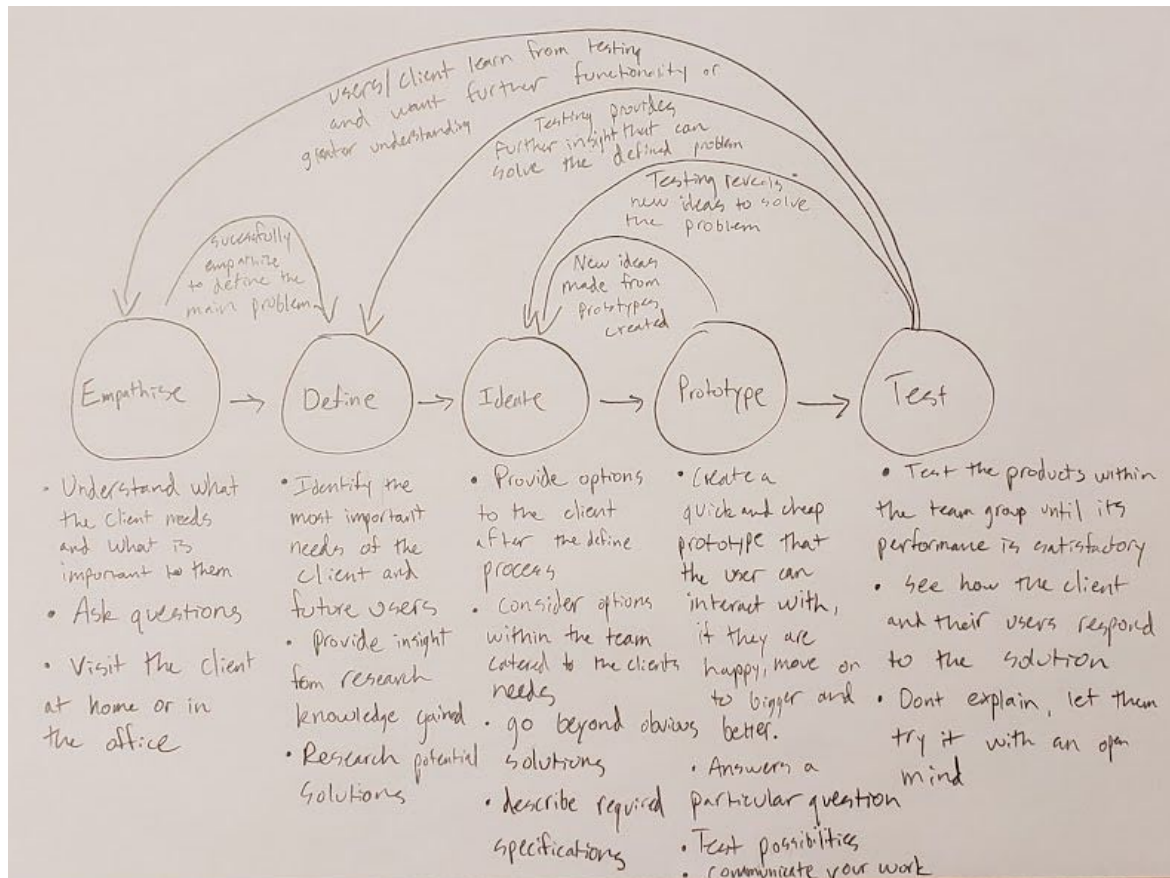 users/client learn from testing
and want further functionality or
greater understanding
Testing provides
further insight that can
solve the defined problem
Testing reveals
new ideas to solve
the problem
sucessfully
empathise
to define the
main problem
New ideas
made from
prototypes
created
Empathise
Define
Ideate
Prototype
Test
• Understand what
the client needs
and what is
important to them
• Ask questions
• Visit the client
at home or in
the office
• Identify the
most important
needs of the
client and
future users
• Provide insight
from research
knowledge gained
• Research potential
solutions
• Provide options
to the client
after the define
process
• Consider options
within the team
catered to the clients
needs
• go beyond obvious
solutions
• describe required
specifications
• Create a
quick and cheap
prototype that
the user can
interact with,
if they are
happy, move on
to bigger and
better.
• Answers a
particular question
• Test possibilities
• communicate your work
• Test the products within
the team group until its
performance is satisfactory
• See how the client
and their users respond
to the solution
• Dont explain, let them
try it with an open
mind